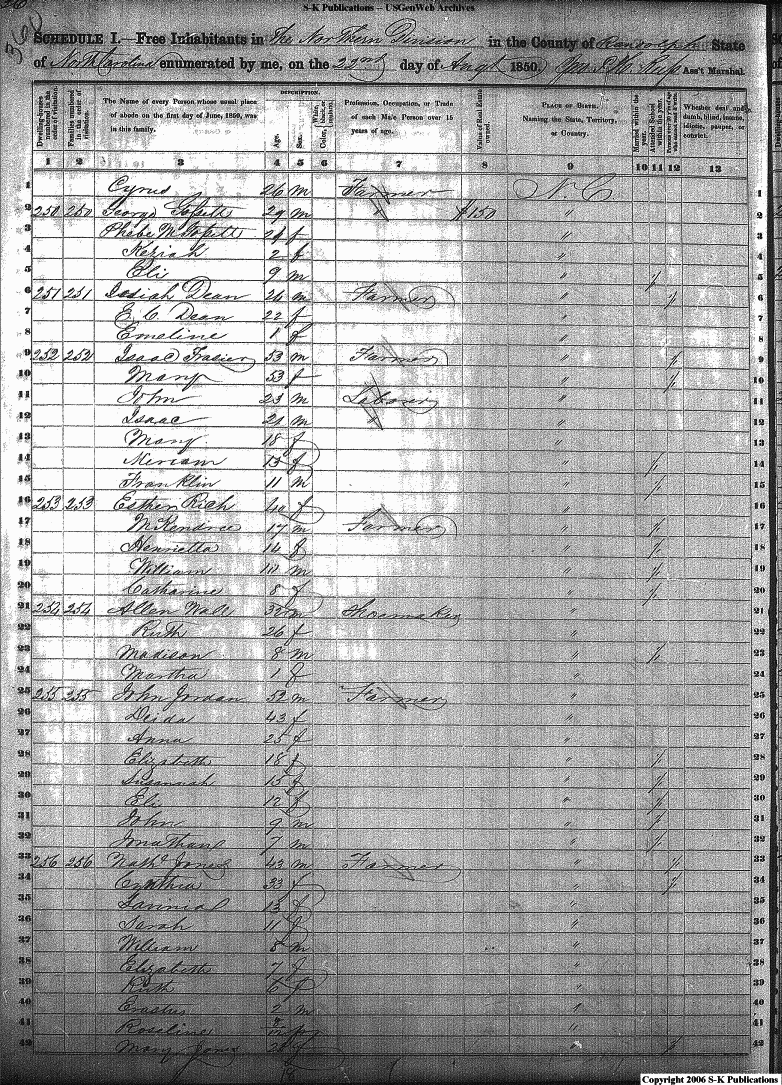 S-K Publications -- USGenWeb Archives
360
SCHEDULE I.—Free Inhabitants in The Northern Division in the County of Randolph State
of North Carolina enumerated by me, on the 22nd day of Augt 1850. Ass't Marshal.
Dwelling-houses numbered in the order of visitation.
Families numbered in the order of visitation.
The Name of every Person whose usual place of abode on the first day of June, 1850, was in this family.
DESCRIPTION.
Age.
Sex.
Color,
Profession, Occupation, or Trade of each Male Person over 15 years of age.
Value of Real Estate owned.
PLACE OF BIRTH. Naming the State, Territory, or Country.
Married within the year.
Attended School within the year.
Whether deaf and dumb, blind, insane, idiotic, pauper, or convict.
1 2 3 4 5 6 7 8 9 10 11 12 13
1 Cyrus 26 m Farmer N. C 1
2 250 250 George 29 m " $150 " 2
3 Phebe M f " 3
4 Keziah 2 f " 4
5 Eli 9 m " / 5
6 251 251 Josiah Dean m Farmer " / 6
7 E. C. Dean 22 f " 7
8 Emeline 1 f " 8
9 252 252 Isaac Frasier 53 m Farmer " / 9
10 Mary 53 f " / 10
11 John 23 m Laborer " 11
12 Isaac 21 m " " 12
13 Mary 18 f " 13
14 Meriam 13 f " / 14
15 Franklin 11 m " / 15
16 253 253 Esther Rich 40 f " 16
17 McKendree 17 m Farmer " / 17
18 Henrietta 14 f " / 18
19 William 10 m " / 19
20 Catharine 8 f " / 20
21 254 254 Allen Wall m Shoamaker " 21
22 Ruth 26 f " 22
23 Madison 8 m " / 23
24 Martha 1 f " 24
25 255 255 John Jordan 52 m Farmer " 25
26 43 f " 26
27 Anna 25 f " 27
28 Elizabeth 18 f " / 28
29 Susannah 15 f " / 29
30 Eli 12 f " / 30
31 John 9 m " / 31
32 Jonathan 7 m " / 32
33 256 256 Nath'l Jones 43 m Farmer " / 33
34 Cynthia 33 f " / 34
35 Lavinia 13 f " 35
36 Sarah 11 f " 36
37 William 8 m " 37
38 Elizabeth 7 f " 38
39 Ruth 6 f " 39
40 Erastus 2 m " 40
41 Roseline " 41
42 Mary Jones f " / 42
Copyright 2006 S-K Publications